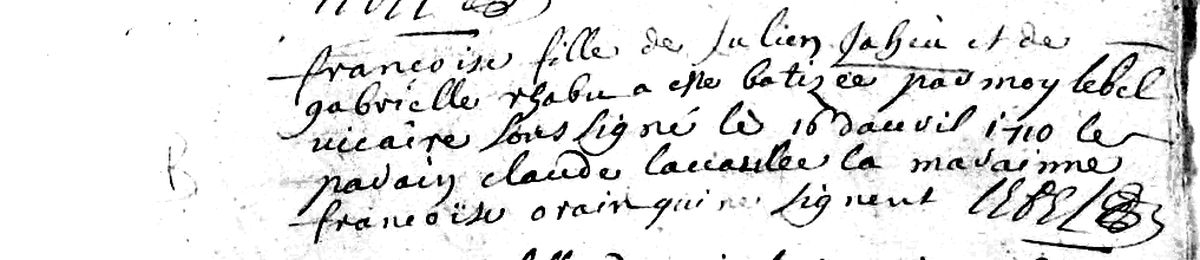 francoise fille de Julien Jahiu et de
gabrielle rhabu a este batizée par moy lebel
vicaire sous signé le 16 d'auvril 1710 le
parain claude lacaulee la marainne
francoise orain qui ne signent lebel